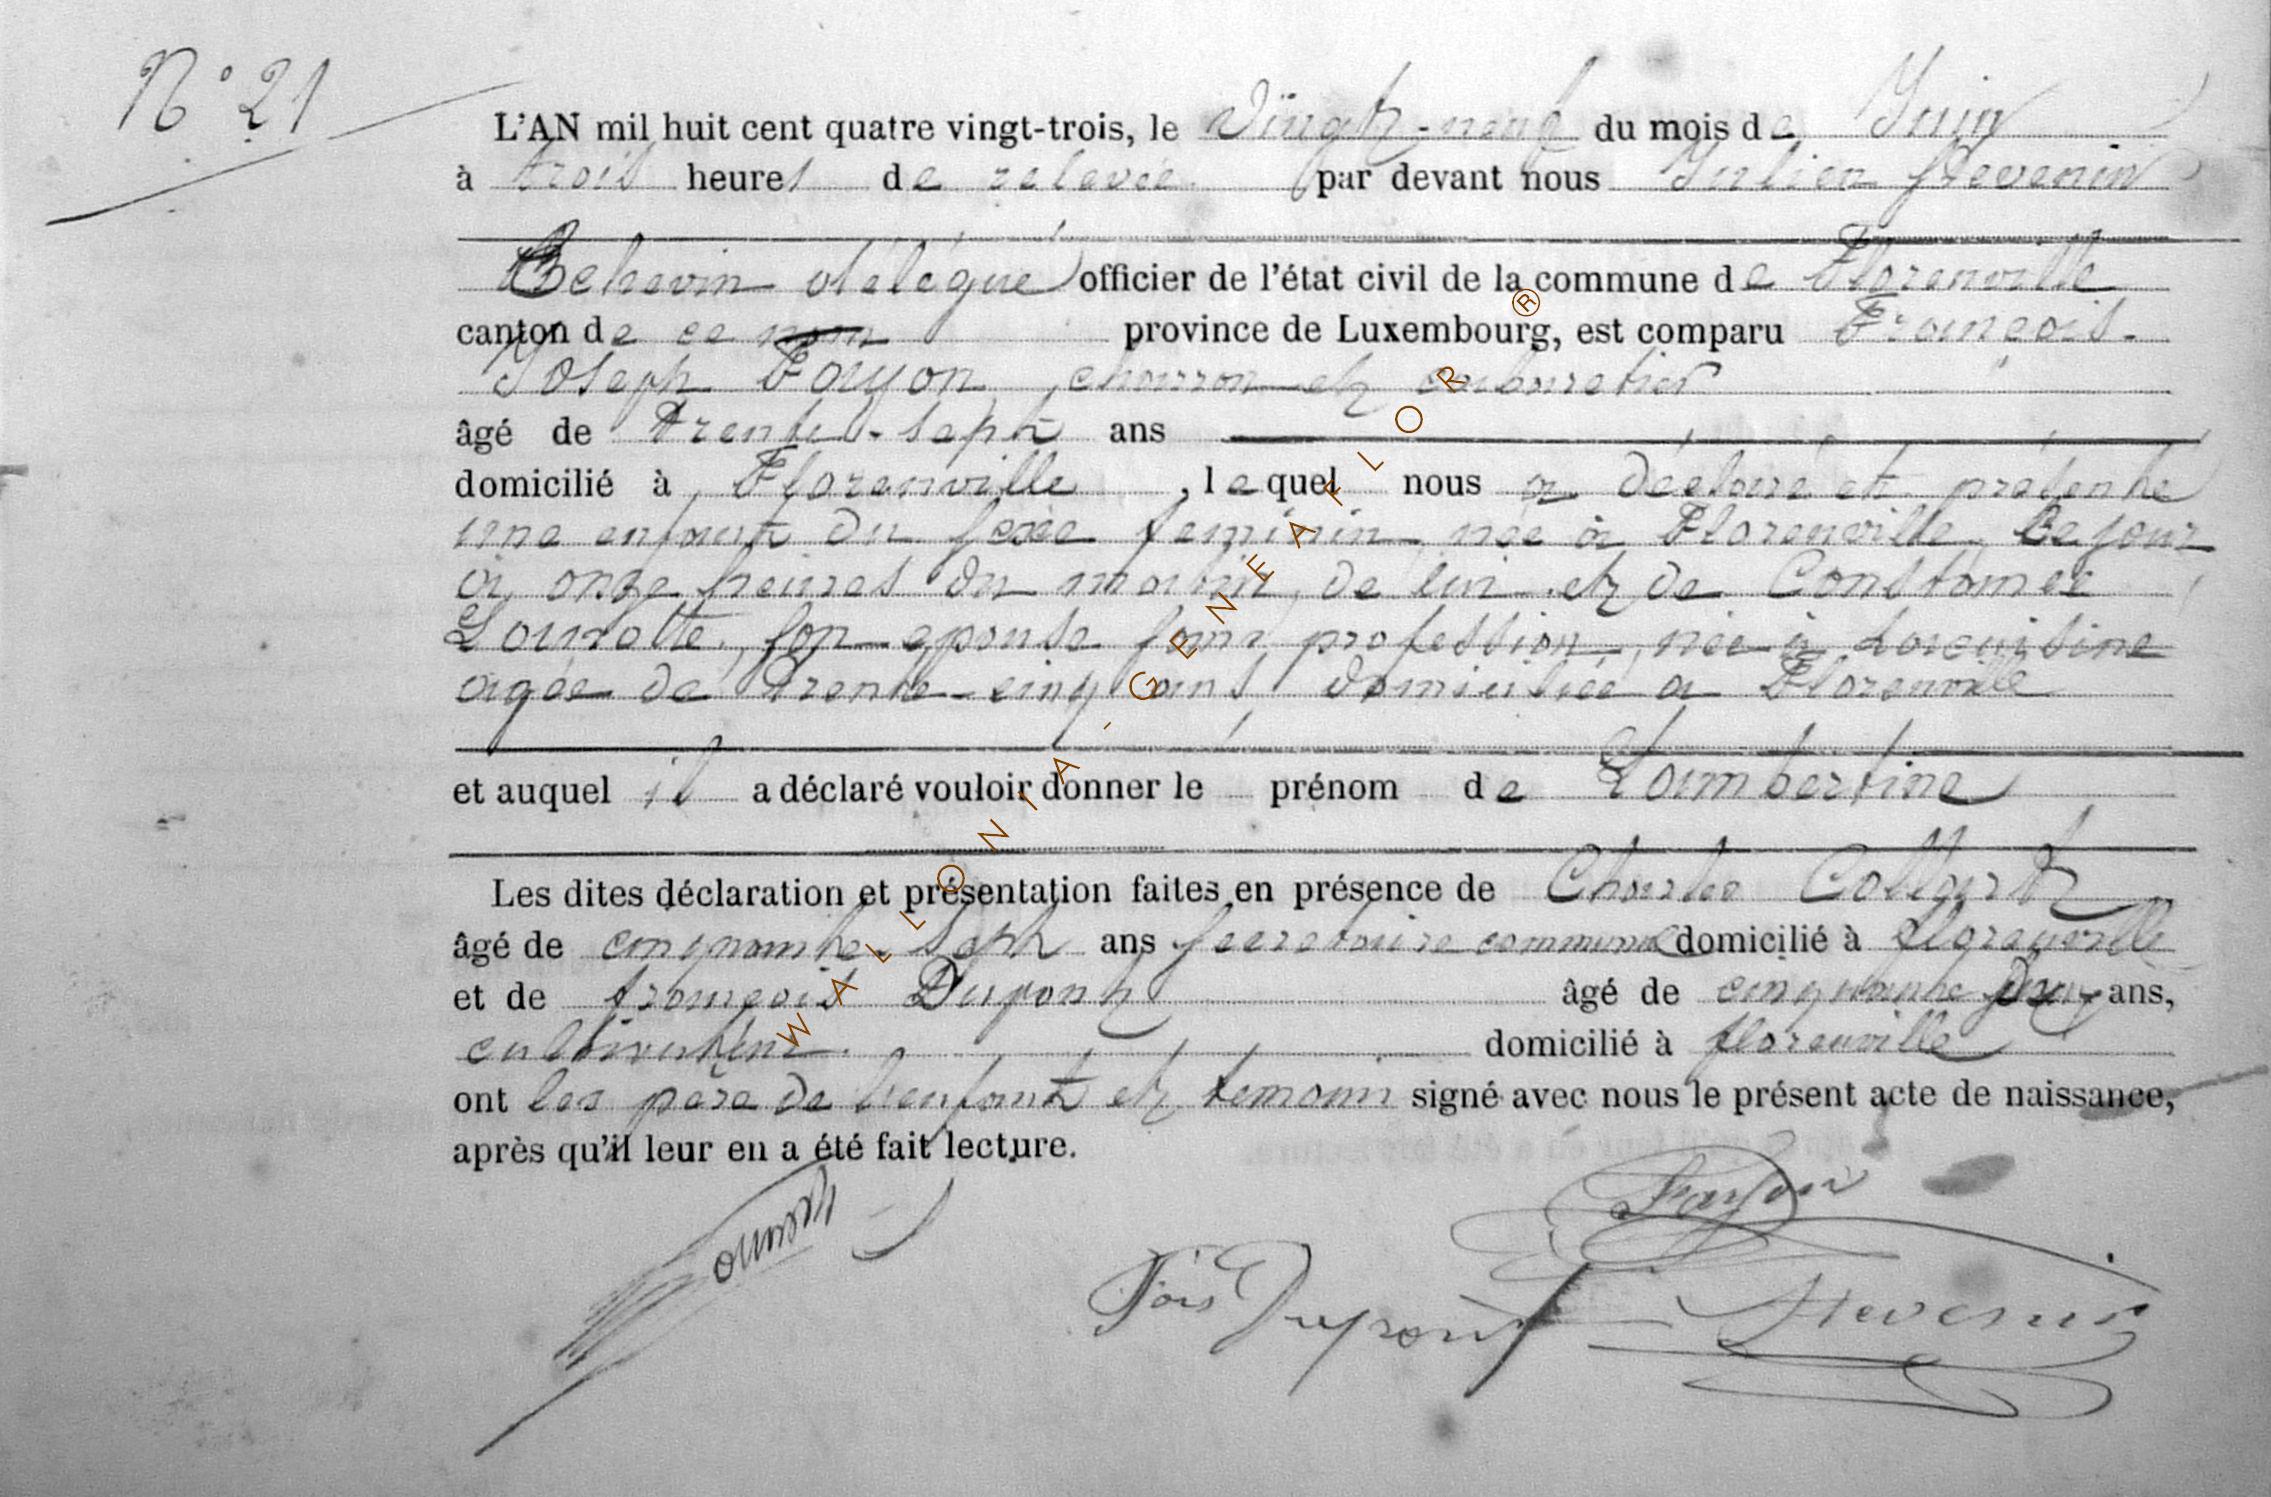 N° 21
L'AN mil huit cent quatre vingt-trois, le vingt-neuf du mois de Juin
à trois heures de relevée par devant nous Julien Stevenin
Echevin délégué officier de l'état civil de la commune de Florenville
canton de ce nom province de Luxembourg, est comparu François-
Joseph Foyon, charron et cabaretier
âgé de trente-sept ans
domicilié à Florenville, lequel nous a déclaré et présenté
une enfant du sexe feminin, née à Florenville, ce jour
à onze heures du matin, de lui et de Constance
son epouse sans profession, née à
agée de trente-cinq ans domiciliée à Florenville
et auquel il a déclaré vouloir donner le prénom de Lambertine
Les dites déclaration et présentation faites en présence de Charles Collart
âgé de cinquante-sept ans secretaire communal domicilié à florenville
et de françois Dupont âgé de cinquante deux ans,
cultivateur domicilié à florenville
ont les père de l'enfant et temoin signé avec nous le présent acte de naissance,
après qu'il leur en a été fait lecture.
Foyon
Fois Dupont Stevenin
WALLONIA-GENEAFLOR®